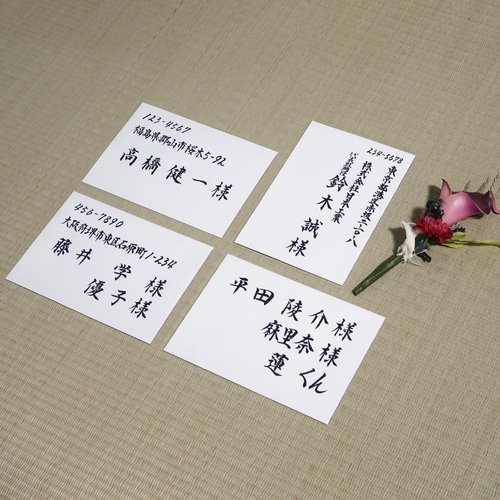 123-4567
福島県郡山市桜木5-92
高橋健一様
234-5678
東京都港区赤坂二-一〇-八
株式会社日東工業
鈴木誠様
456-7890
大阪府堺市東区石原町1-234
藤井 学 様
優子様
平田 陵介 様
麻里奈 様
蓮 くん